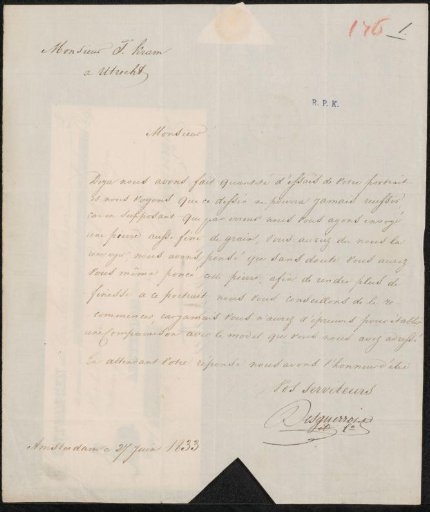 176 1.
Monsieur F. Kram
a Utrecht
R. P. K.
Monsieur
Deja nous avons fait quantité d'essais de Votre portrait
Et nous voyons que ce dessin ne pourra jamais reussir
car en supposant que par erreur nous Vous ayons envoyé
une pierre aussi fine de grain, Vous auriez du nous la
nous avons pensé que sans doute Vous aviez
Vous même poncé cette pierre, afin de rendre plus de
finesse a ce portrait nous Vous conseillons de le re
commencer, car jamais Vous n'aurez d'epreuves pour etablir
une Comparaison avec le model que Vous nous avez adressé
En attendant Votre réponse nous avons l'honneur d'être
Vos serviteurs
Desguerrois & Co
Amsterdam 27 Juin 1833